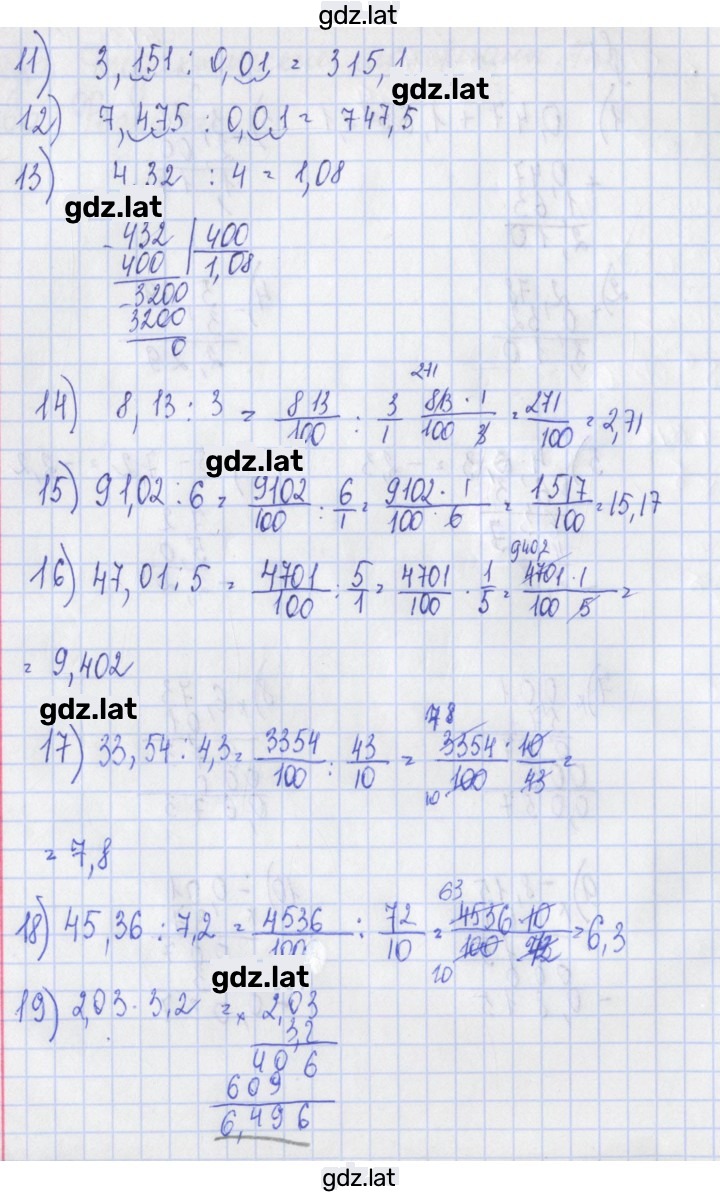 gdz.lat
11) 3,151 : 0,01 = 315,1
gdz.lat
12) 7,475 : 0,01 = 747,5
13) 4,32 : 4 = 1,08
gdz.lat
- 432 | 400
400 | 1,08
- 3200
3200
0
271
14) 8,13 : 3 = 813/100 : 3/1 813 · 1/100 3 = 271/100 = 2,71
gdz.lat
15) 91,02 : 6 = 9102/100 : 6/1 = 9102 · 1/100 · 6 = 1517/100 = 15,17
9402
16) 47,01 : 5 = 4701/100 : 5/1 = 4701/100 · 1/5 = 4701 · 1/100 5 =
= 9,402
gdz.lat
78
17) 33,54 : 4,3 = 3354/100 : 43/10 = 3354/100 · 10/43 =
10
= 7,8
63
18) 45,36 : 7,2 = 4536/100 : 72/10 = 4536/100 10/72 = 6,3
10
gdz.lat
19) 2,03 · 3,2 = × 2,03
3,2
406
609
6,496
gdz.lat